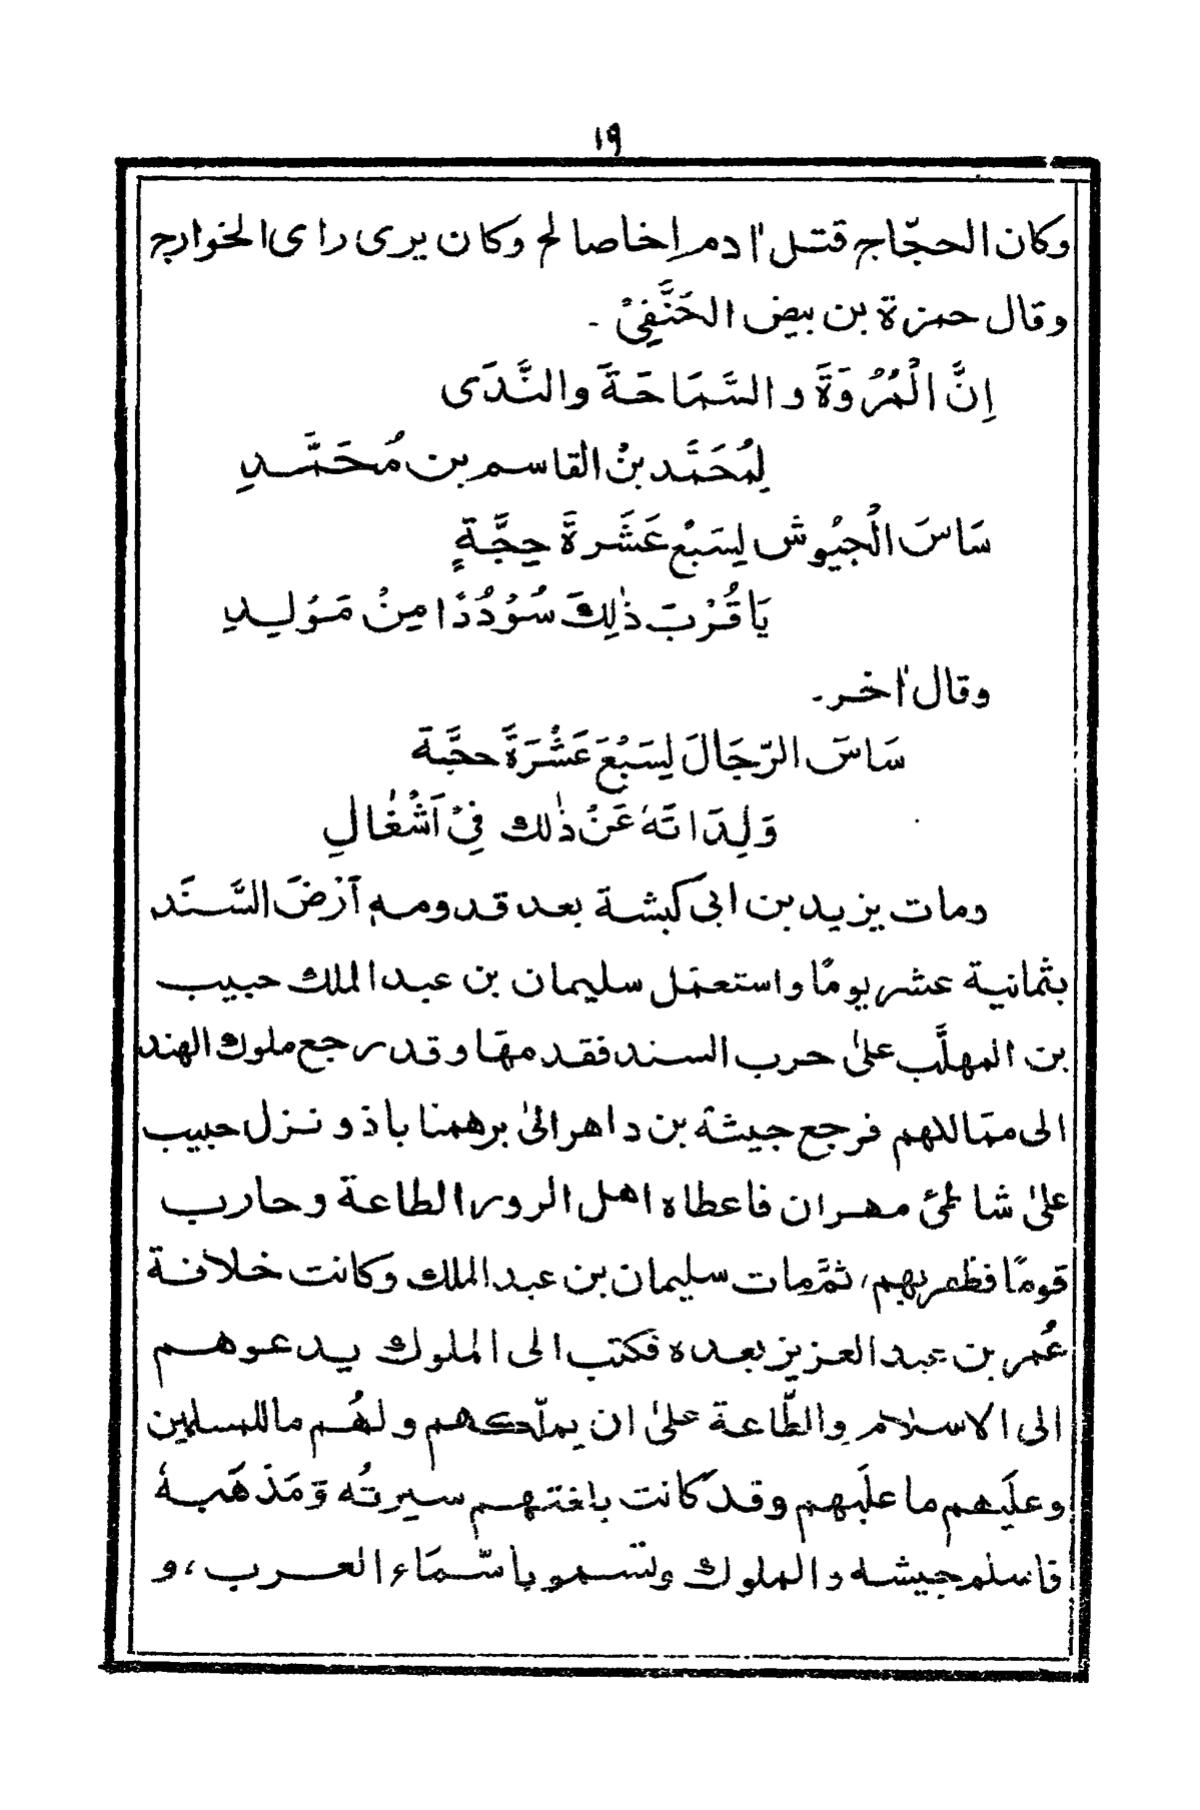 ١٩
وكان الحجّاج قتل اٰدم اخا صالح وكان يرى راى الخوارج
وقال حمزة بن بيض الحَنَّفِىْ ۔
اِنَّ الْمُرُوَةَ والسَّمَاحَةَ والنَّدَى
لِمُحَمَّد بنْ القاسم بن مُحَمَّدِ
سَاسَ الْجيُوش لِسَبْع عَشَرةَ حِجَّةٍ
يَا قُرْبَ ذٰلِكَ سُوْدُدًا مِنْ مَوْلِدِ
وقال اٰخر ۔
سَاسَ الرّجَالَ لِسَبْعَ عَشْرَةَ حجَّة
وَلِدَاتَهٗ عَنْ ذٰلك فِىْ اَشْغَالِ
ومات يزيد بن ابى كبشة بعد قدومه اَرْضَ السَّنَد
بثمانية عشر يومًا واستعمل سليمان بن عبد الملك حبيب
بن المهلَّب علىٰ حرب السند فقدمها وقد رجع ملوك الهند
الى ممالكهم فرجع جيشة بن داهر الىٰ برهمنا باذ ونزل حبيب
علىٰ شاطئ مهران فاعطاه اهل الرور الطاعة وحارب
قومًا فظفر بهم، ثمَّ مات سليمان بن عبد الملك وكانت خلافة
عُمر بن عبد العزيز بعده فكتب الى الملوك يدعوهم
الى الاسلام والطّاعة علىٰ ان يملّكهم ولهُم ما للمسلمين
وعليَهم ما علَيهم وقد كانت بلغتهم سيرتُه وَمَذهَبهٗ
فاسلم جيشه والملوك وتسمو باسّمَاء العرب، و